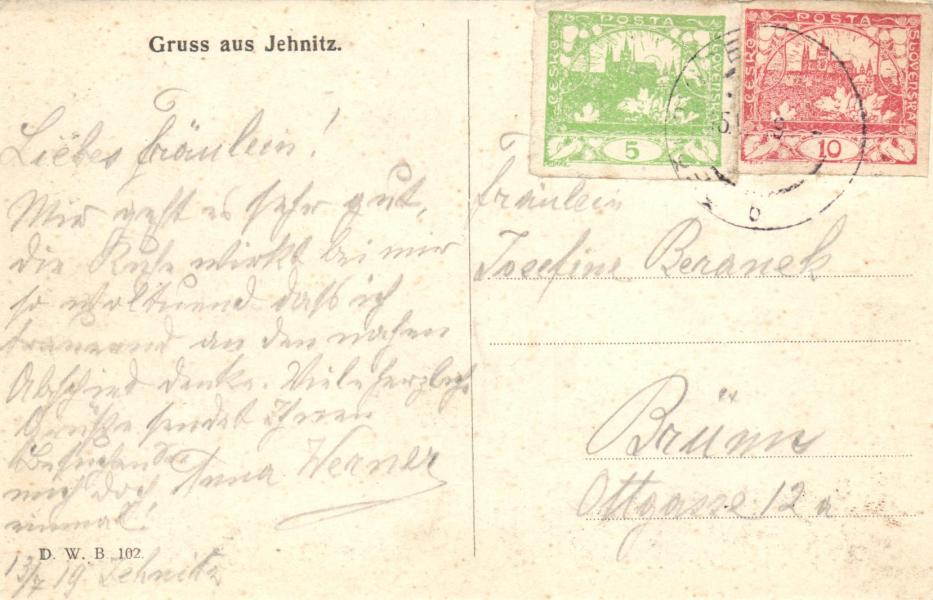 Gruss aus Jehnitz.
Liebes Fräulein!
Mir geht es sehr gut,
die Ruhe wirkt bei mir
so woltuend daß ich
trauernd an den nahen
Abschied denke. Viele herzlich
Grüße sendet Ihnen
Besuchen Sie
mich doch
Anna Werner
einmal!
D. W. B. 102.
13/7 19. Jehnitz
POSTA
ČESKO
SLOVENSKÁ
5
POSTA
ČESKO
SLOVENSKÁ
10
Fräulein
Josefine Beranek
Brünn
Ottgasse 12 a